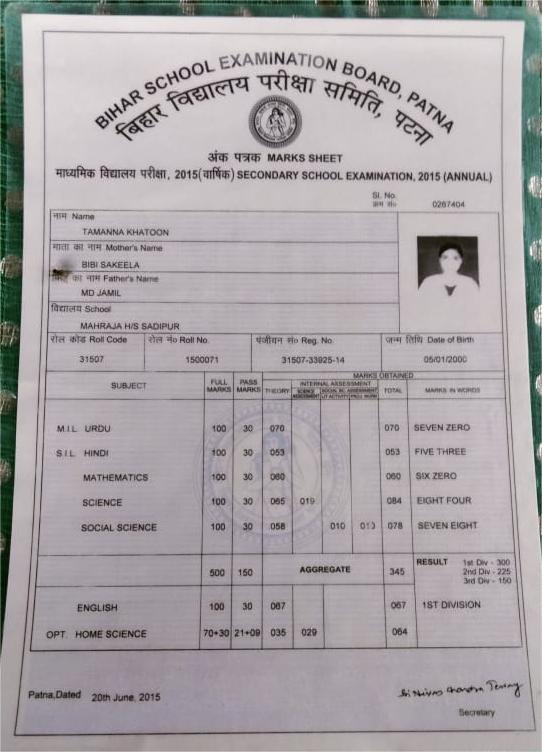 BIHAR SCHOOL EXAMINATION BOARD, PATNA
बिहार विद्यालय परीक्षा समिति, पटना
अंक पत्रक MARKS SHEET
माध्यमिक विद्यालय परीक्षा, 2015(वार्षिक) SECONDARY SCHOOL EXAMINATION, 2015 (ANNUAL)
Sl. No.
क्रम सं० 0267404
नाम Name
TAMANNA KHATOON
माता का नाम Mother's Name
BIBI SAKEELA
का नाम Father's Name
MD JAMIL
विद्यालय School
MAHRAJA H/S SADIPUR
रोल कोड Roll Code रोल नं० Roll No. पंजीयन सं० Reg. No. जन्म तिथि Date of Birth
31507 1500071 31507-33925-14 05/01/2000
SUBJECT FULL MARKS PASS MARKS THEORY MARKS OBTAINED INTERNAL ASSESSMENT TOTAL MARKS IN WORDS
M.I.L. URDU 100 30 070 070 SEVEN ZERO
S.I.L. HINDI 100 30 053 053 FIVE THREE
MATHEMATICS 100 30 060 060 SIX ZERO
SCIENCE 100 30 065 019 084 EIGHT FOUR
SOCIAL SCIENCE 100 30 058 010 010 078 SEVEN EIGHT
500 150 AGGREGATE 345 RESULT 1st Div - 300
2nd Div - 225
3rd Div - 150
ENGLISH 100 30 067 067 1ST DIVISION
OPT. HOME SCIENCE 70+30 21+09 035 029 064
Patna,Dated 20th June, 2015
Secretary